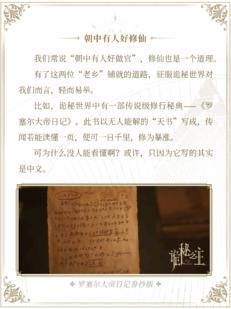 朝中有人好修仙
我们常说“朝中有人好做官”，修仙也是一个道理。
有了这两位“老乡”铺就的道路，征服诡秘世界对
我们而言，轻而易举。
比如，诡秘世界中有一部传说级修行秘典——《罗
塞尔大帝日记》。此书以无人能解的“天书”写成，传
闻若能读懂一页，便可一日千里，修为暴涨。
可为什么没人能看懂啊？或许，只因为它写的其实
是中文。
诡秘之主
罗塞尔大帝日记眷抄版